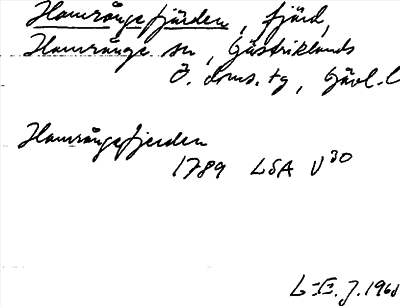 Hamrångefjärden, fjärd,
Hamrånge sn, Gästriklands
Ö. doms. tg, Gävl. l
Hamrångefjerden
1789 LSA V 30
L-E. J. 1968